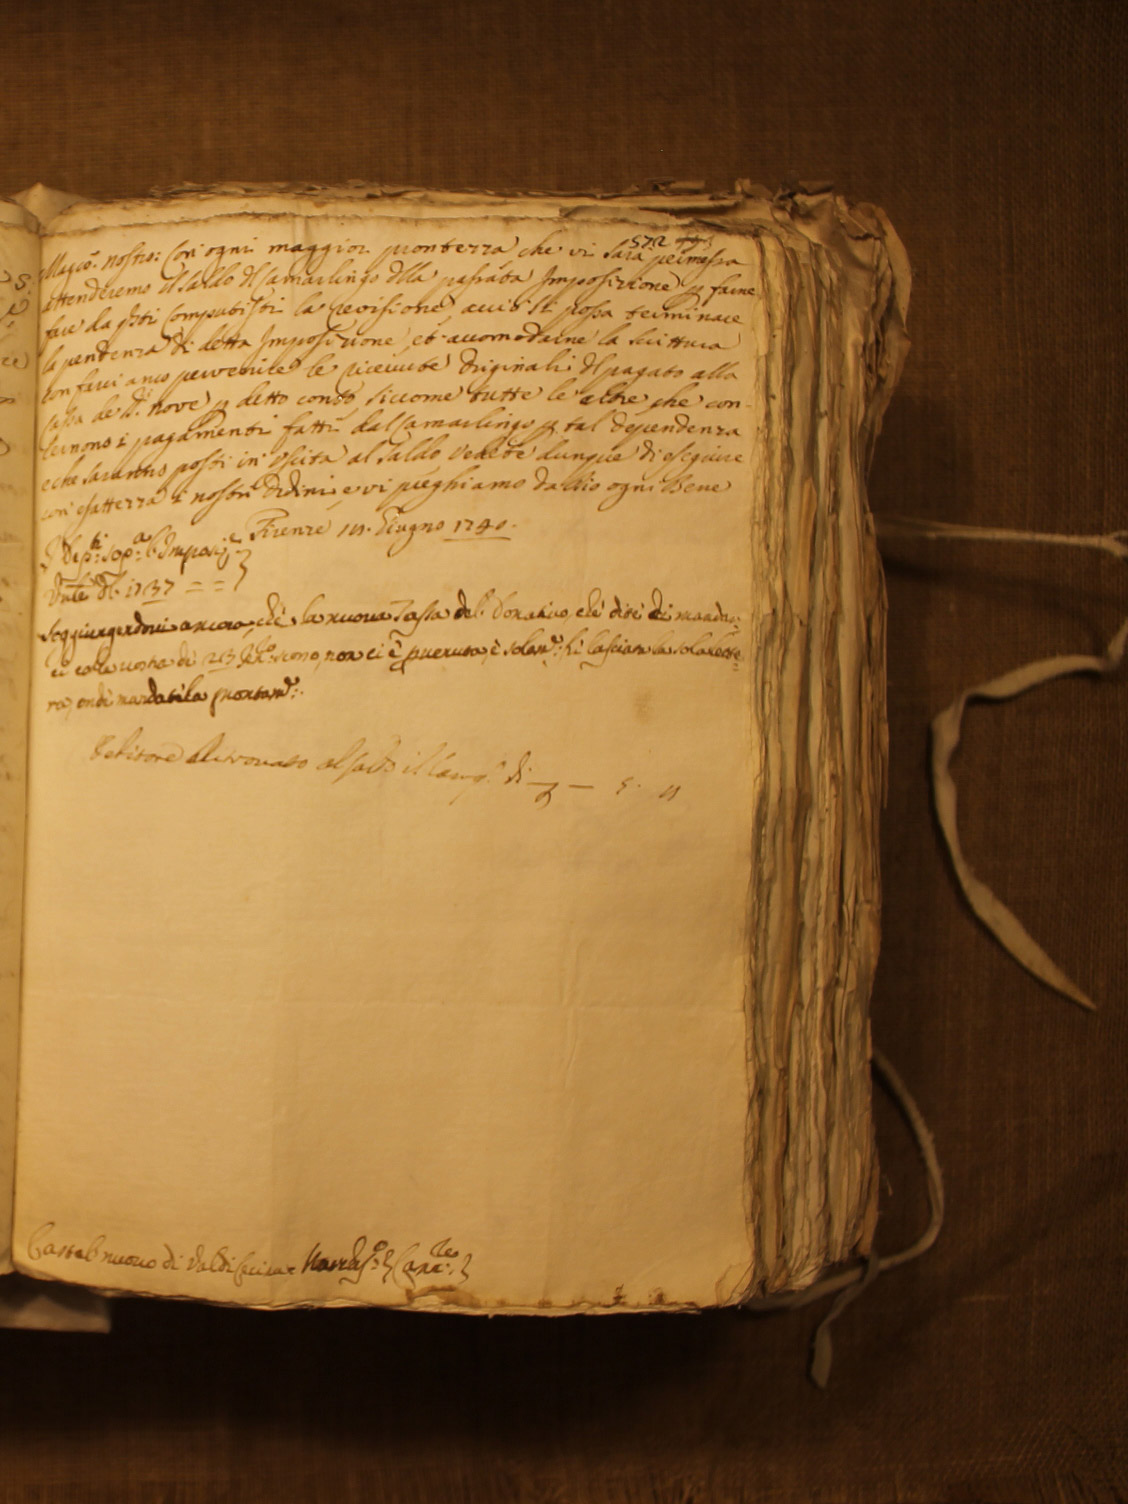 572 493
Magco. nostro: Con ogni maggior prontezza che vi sarà permessa
attenderemo il saldo del Camarlingo della passata Imposizione p farne
fare da psti Computisti la revisione, acciò si possa terminare
la pendenza di detta Imposizione, et accomodarne la scrittura
con farci anco pervenire le ricevute Originali del pagato alla
Cassa de SS.i Nove p detto conto siccome tutte le altre che con-
cernono i pagamenti fatti dal Camarlingo p tal dependenza
e che saranno posti in Uscita al Saldo Vedete dunque di eseguire
con esattezza i nostri Ordini, e vi preghiamo da Dio ogni Bene
Firenze Giugno 1740.
I Dep.ti sop.a l'Imposiz.e
del 1737 = =
Soggiungendovi ancora, che la nuova Tassa del Donativo, che dite di manda-
ci colla vostra di 23 scorso, non ci è pervenuta, e solam.e si lasciata la sola lette-
ra, onde mandatela prontam.e:
Debitore ritrovato al saldo il Camgo di
Castel nuovo di Val di Cecina Canc.re